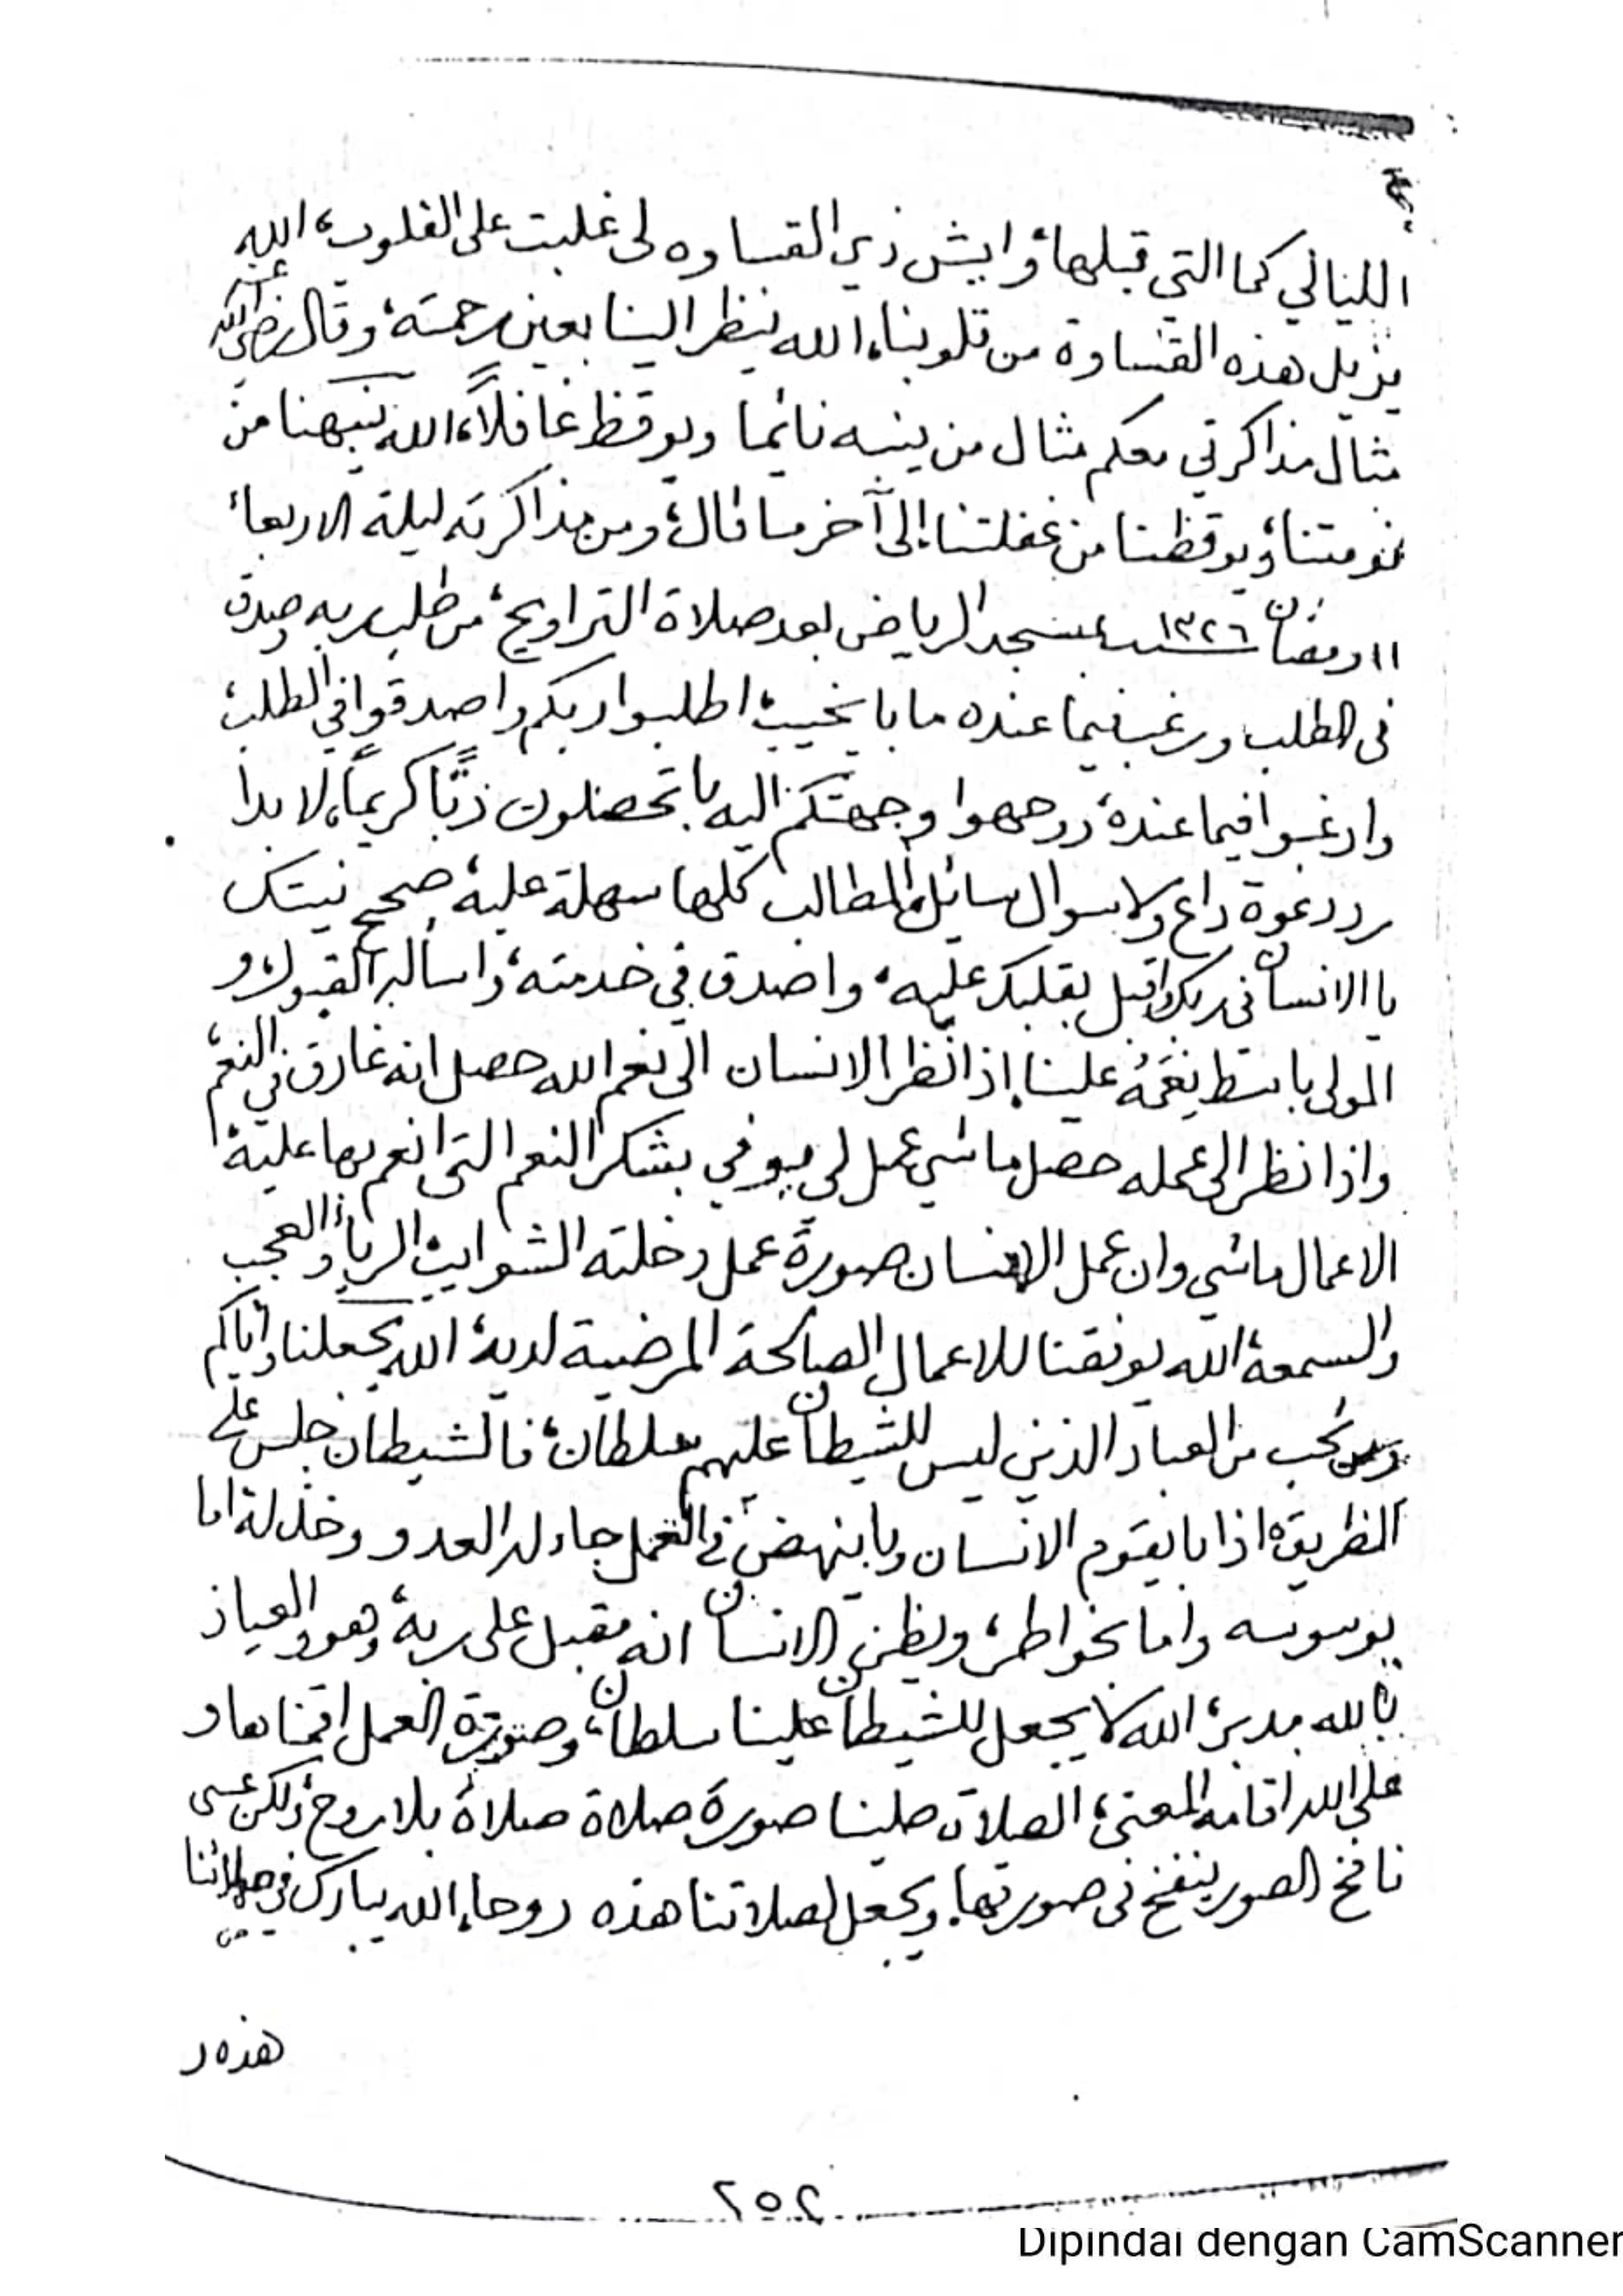 الليالي كما التي قبلها، وايش ذي القساوه لى غلبت على القلوب، الله
يزيل هذه القساوة من قلوبنا، الله ينظر الينا بعين رحمته، وقال رضي الله عنه
مثال مذاكرتي معكم مثال من ينبه نائما ويوقظ غافلاً، الله ينبهنا من
نومتنا، ويوقظنا من غفلتنا، إلى آخر ما قال، ومن مذاكرته ليلة الاربعاء
١١ رمضان ١٣٢٦ بمسجد الرياض بعد صلاة التراويح، من طلب ربه وصدق
في الطلب ورغب فيما عنده ما با يخيب، اطلبوا ربكم واصدقوا في الطلب،
وارغبوا فيما عنده، ووجهوا وجهتكم اليه با تحصلون ربًّا كريماً، لا بدا
رد دعوة داع ولا سوال سائل، المطالب كلها سهلة عليه، صحح نيتك
يا الانسان في ربك واقبل بقلبك عليه، واصدق في خدمته، واسأله القبول، و
المولى باسط نعمه علينا، إذا نظر الانسان الى نعم الله حصل انه غارق في النعم،
واذا نظر الى عمله حصل ما شي عمل لى يوفي بشكر النعم التى انعم بها عليه،
الاعمال ما شي وان عمل الانسان صورة عمل دخلته الشوايب، الرياء والعجب
والسمعة، الله يوفقنا للاعمال الصالحة المرضية لديه، الله يجعلنا واياكم
ومن نحب من العباد الذين ليس للشيطان عليهم سلطان، فالشيطان جلس على
الطريق، اذا با يقوم الانسان وبا ينهض في العمل جاء له العدو وخذله، اما
بوسوسه واما بخواطر، ويظن الانسان انه مقبل على ربه، وهو والعياذ
بالله مدبر، الله لا يجعل للشيطان علينا سلطان، وصورة العمل اقمناها و
على الله اقامة المعنى، الصلاة صلينا صورة صلاة صلاة بلا روح، ولكن عسى
نافخ الصور ينفخ في صورتها، ويجعل لصلاتنا هذه روحا، الله يبارك في صلاتنا
هذه و
٢٥٢
Dipindai dengan CamScanner